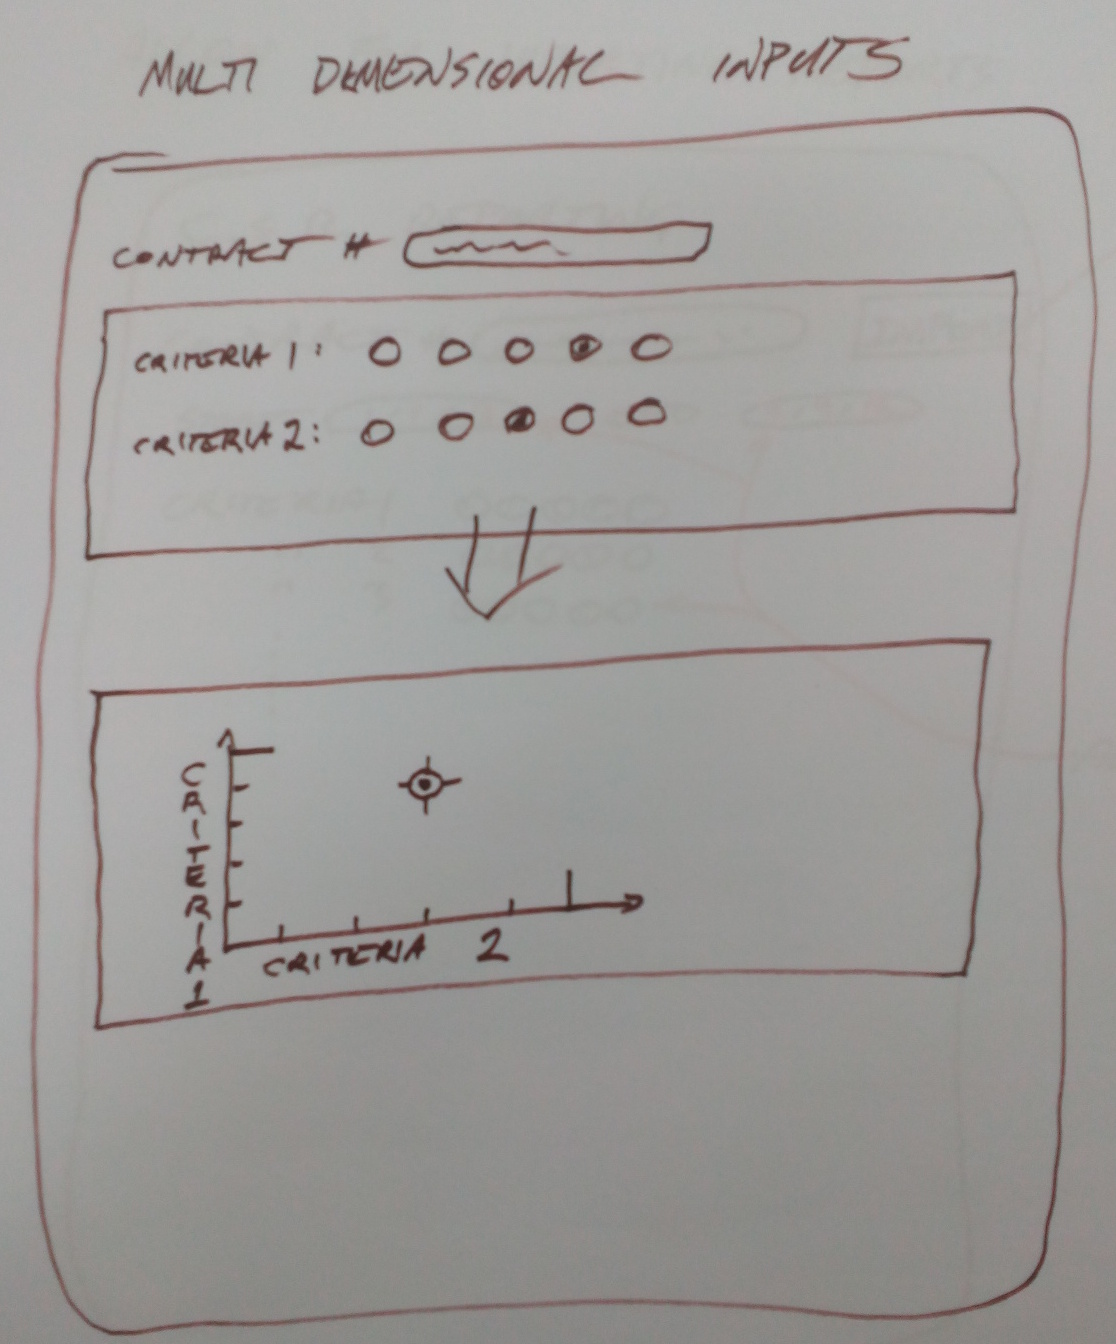 MULTI DEMENSIONAL INPUTS
CONTRACT #
CRITERIA 1:
CRITERIA 2:
CRITERIA 1
CRITERIA 2